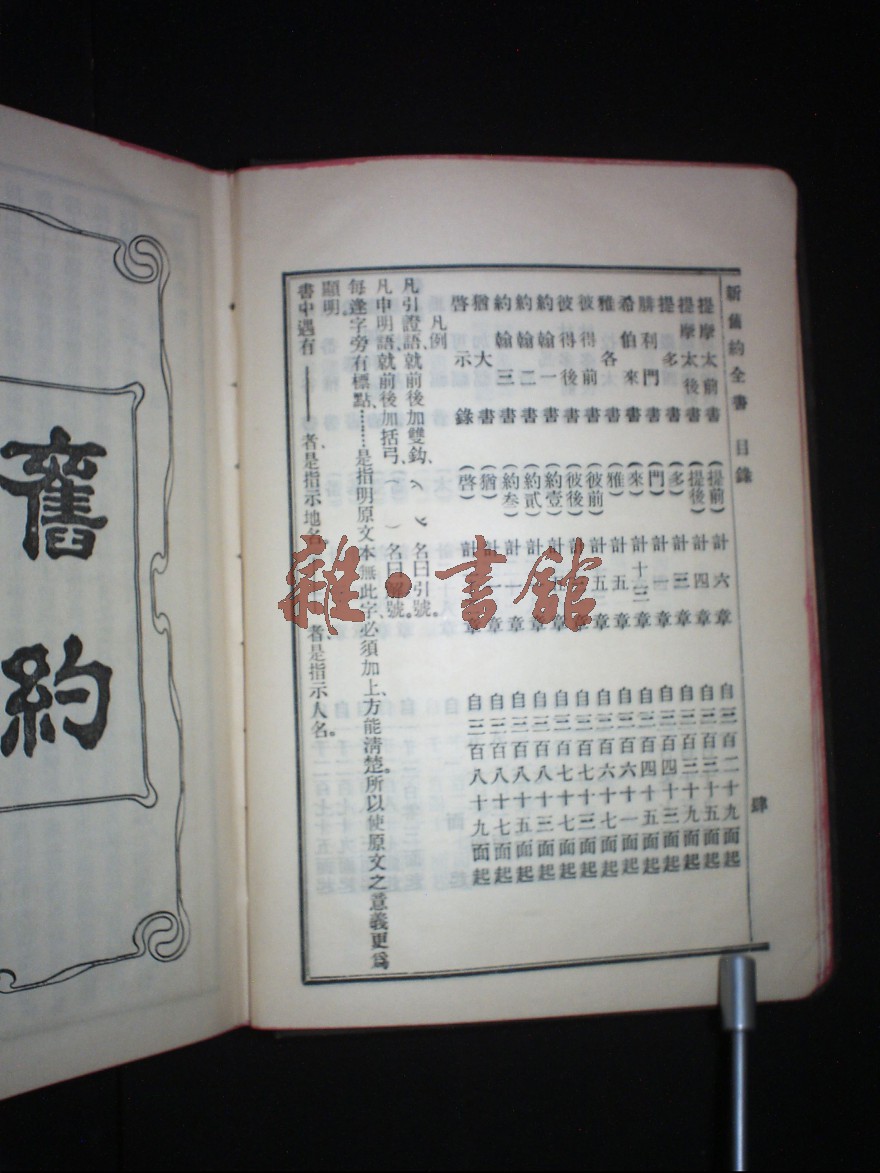 新舊約全書 目錄 肆
提摩太前書 (提前) 計六章 自三百二十九面起
提摩太後書 (提後) 計四章 自三百三十五面起
提多書 (多) 計三章 自三百三十九面起
腓利門書 (門) 計一章 自三百四十三面起
希伯來書 (來) 計十三章 自三百四十五面起
雅各書 (雅) 計五章 自三百六十一面起
彼得前書 (彼前) 計五章 自三百六十七面起
彼得後書 (彼後) 計 章 自三百七十三面起
約翰一書 (約壹) 計 章 自三百七十七面起
約翰二書 (約貳) 計 章 自三百八十三面起
約翰三書 (約叁) 計 章 自三百八十五面起
猶大書 (猶) 計 章 自三百八十七面起
啓示錄 (啓) 計 章 自三百八十九面起
凡例
凡引證語、就前後加雙鈎、 名曰引號。
凡申明語、就前後加括弓、( ) 名曰 號。
每逢字旁有標點、………是指明原文本無此字、必須加上、方能清楚。所以使原文之意義更爲
顯明。
書中遇有 —— 者、是指示地名。 者、是指示人名。
舊約
雜·書館